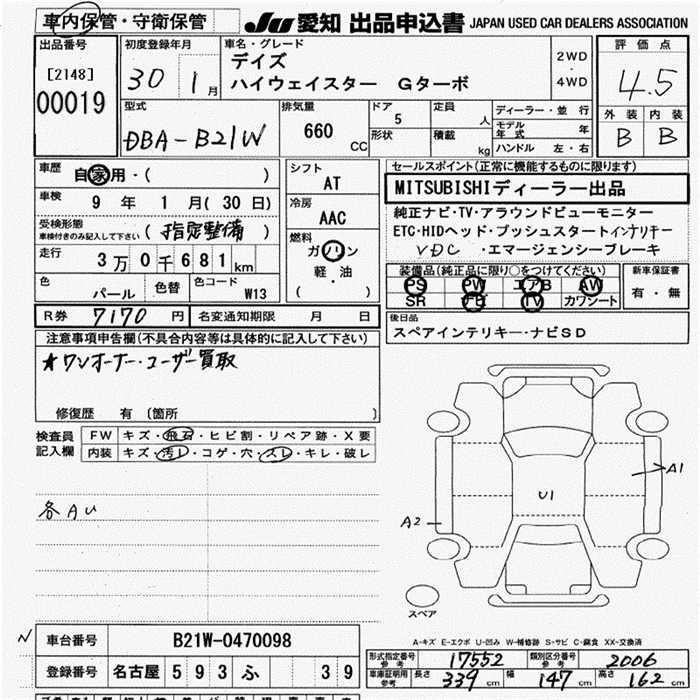 車内保管・守衛保管
JU 愛知 出品申込書 JAPAN USED CAR DEALERS ASSOCIATION
出品番号
[2148]
00019
初度登録年月
30 1月
車名・グレード
デイズ
ハイウェイスター Gターボ
2WD
・
4WD
評価点
4.5
外装 内装
B B
型式
DBA-B21W
排気量
660 CC
ドア
5
形状
定員
人
積載
kg
ディーラー・並行
モデル年式 年
ハンドル 左・右
車歴
自家用・( )
車検
9 年 1 月 (30 日)
受検形態
車検付きのみ記入して下さい (指定整備)
走行
3万0千681km
色
パール
色替
色コード
W13
シフト
AT
冷房
AAC
燃料
ガソリン
軽・油
( )
セールスポイント(正常に機能するものに限ります)
MITSUBISHIディーラー出品
純正ナビ・TV・アラウンドビューモニター
ETC・HIDヘッド・プッシュスタートインテリキー
VDC ・エマージェンシーブレーキ
装備品(純正品に限り○をつけてください)
PS PW エアB AW
SR ナビ TV カワシート
新車保証書
有・無
後日品
スペアインテリキー・ナビSD
R券 7170 円 名変通知期限 月 日
注意事項申告欄(不具合内容等は具体的に記入して下さい)
★ワンオーナー・ユーザー買取
修復歴 有 〔箇所 〕
検査員
記入欄
FW キズ・飛石・ヒビ割・リペア跡・X要
内装 キズ・汚レ・コゲ・穴・スレ・キレ・破レ
各AU
A1
U1
A2
スペア
A-キズ E-エクボ U-凹み W-補修跡 S-サビ C-腐食 XX-交換済
N
車台番号 B21W-0470098
登録番号 名古屋 593 ふ 39
形式指定番号
参考 17552
類別区分番号
参考 2006
車庫証明用
参考 長さ 339 cm 幅 147 cm 高さ 162 cm